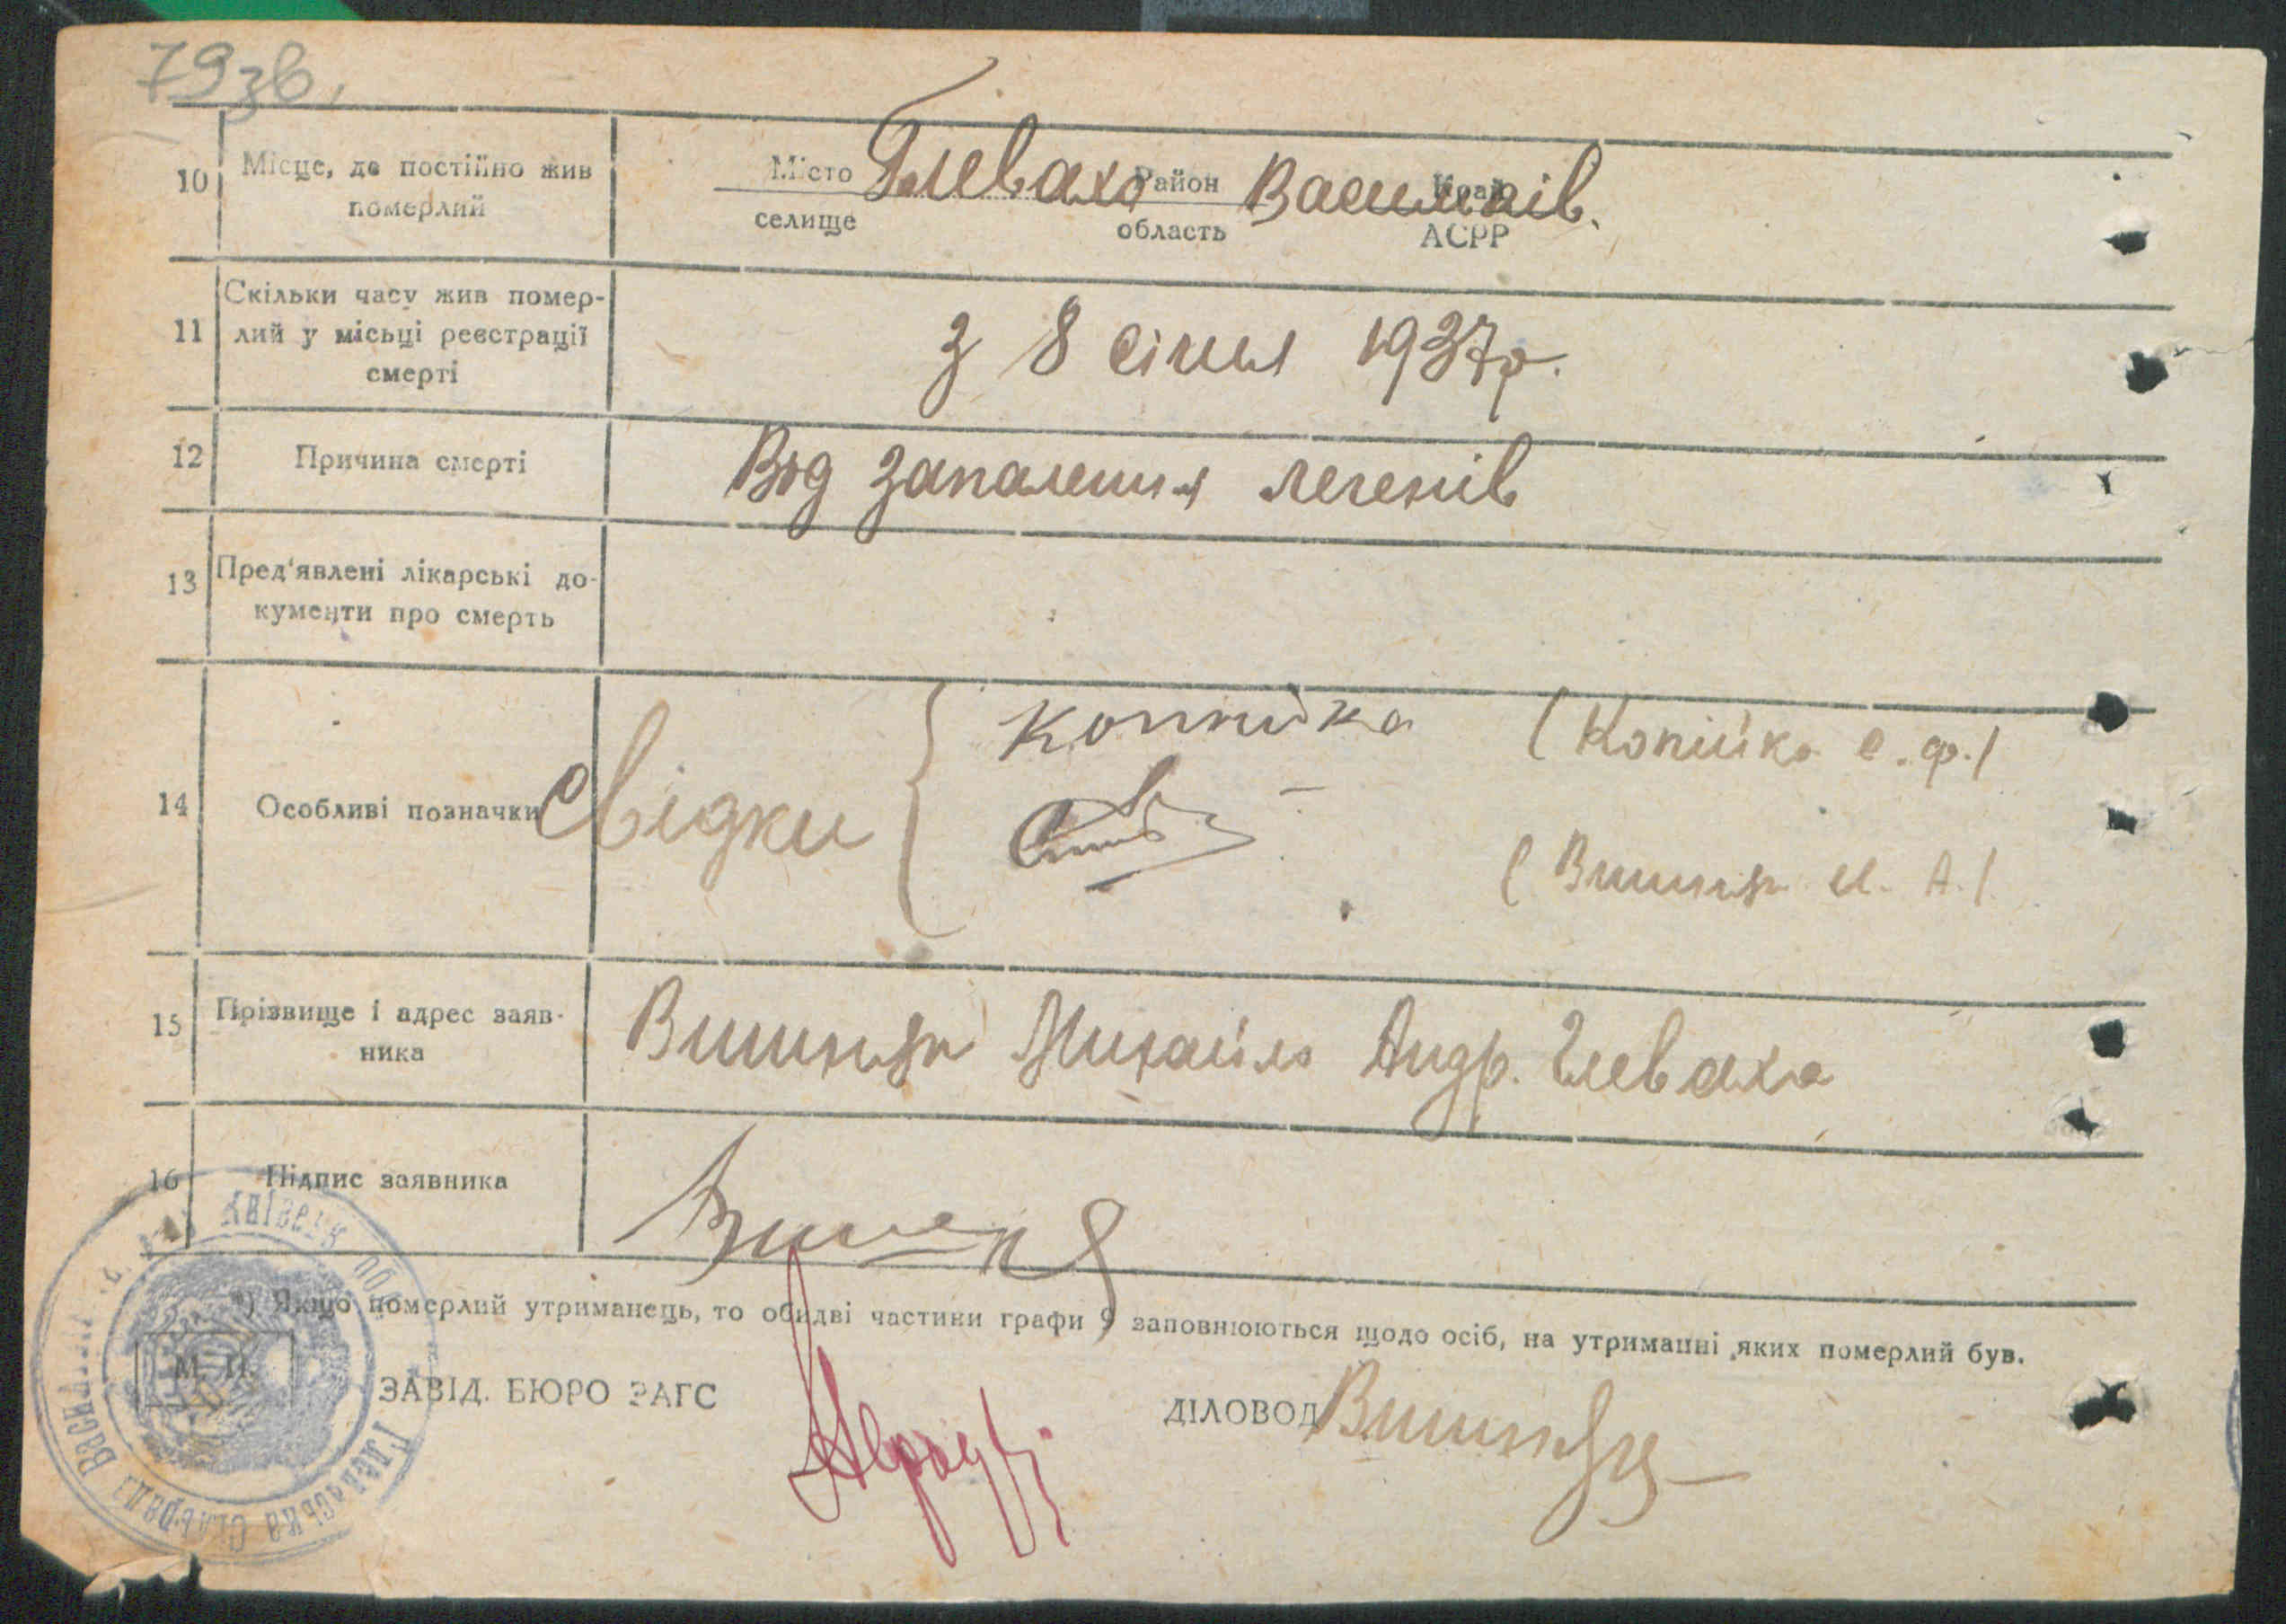 79зв.
10 Місце, де постійно жив померлий
Місто Глеваха Район Васильків. Край
селище область АСРР
11 Скільки часу жив помер-
лий у місьці реєстрації
смерті
з 8 січня 1937р.
12 Причина смерті Від запалення легенів
13 Пред'явлені лікарські до-
кументи про смерть
14 Особливі позначки Свідки
Копийка (Копійка Є. Ф.)
(Вишняк М. А.)
15 Прізвище і адрес заяв-
ника
Вишняк Михайло Андр. Глеваха
16 Підпис заявника
*) Якщо померлий утриманець, то обидві частини графи 9 заповнюються щодо осіб, на утриманні яких померлий був.
М. П.
ЗАВІД. БЮРО ЗАГС ДІЛОВОД
Глевахська Сільрада